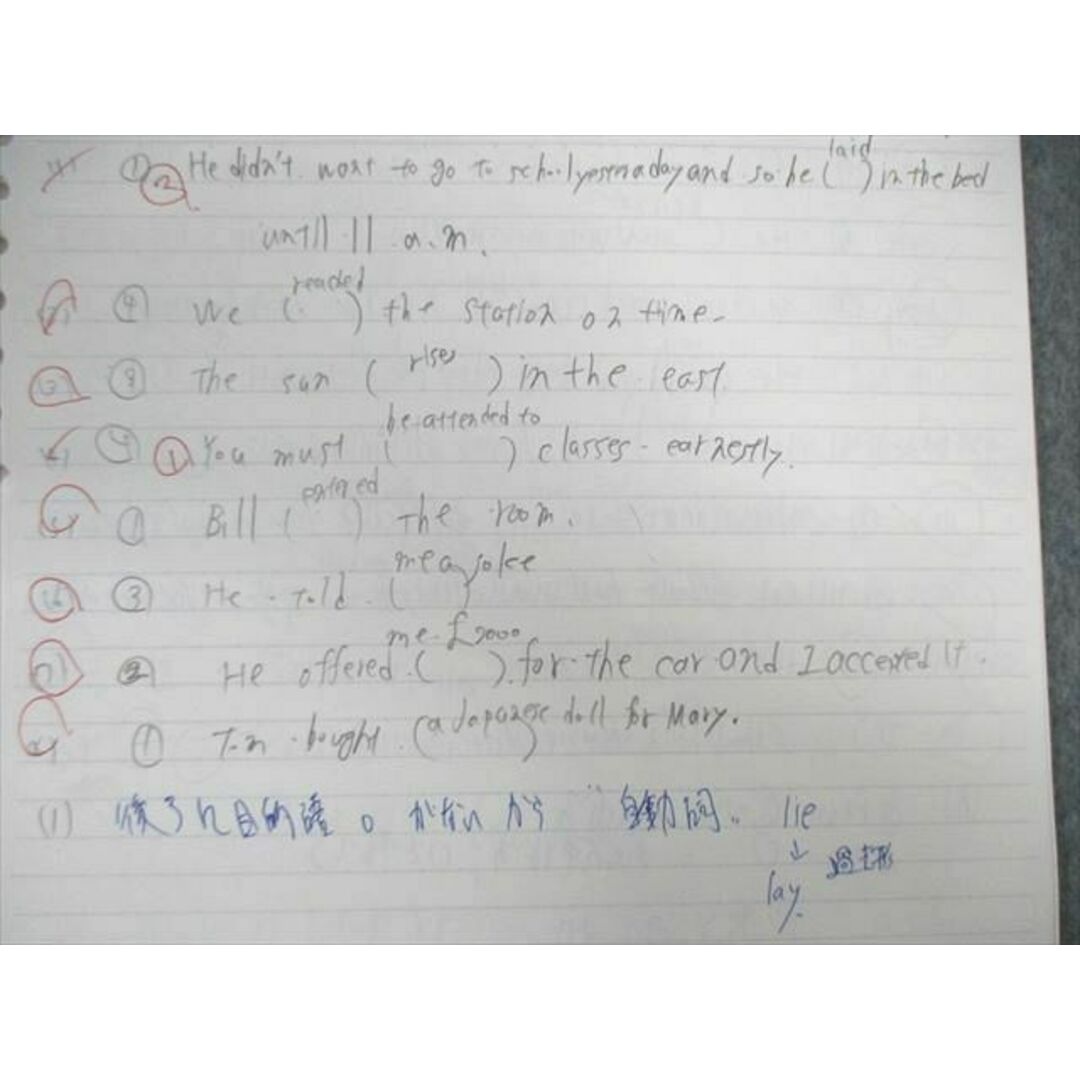 (1) ① ② He didn't want to go to school yesterday and so he ( laid ) in the bed
until 11 a.m.
④ We ( reached ) the station on time.
③ The sun ( rises ) in the east
④ ① You must ( be attended to ) classes earnestly.
① Bill ( entered ) the room.
③ He told ( me a joke )
② He offered ( me £2000 ) for the car and I accepted it.
① Tom bought ( a Japanese doll for Mary.
(1) 後ろに目的語 O がないから 自動詞。 lie
↓ 過去形
lay